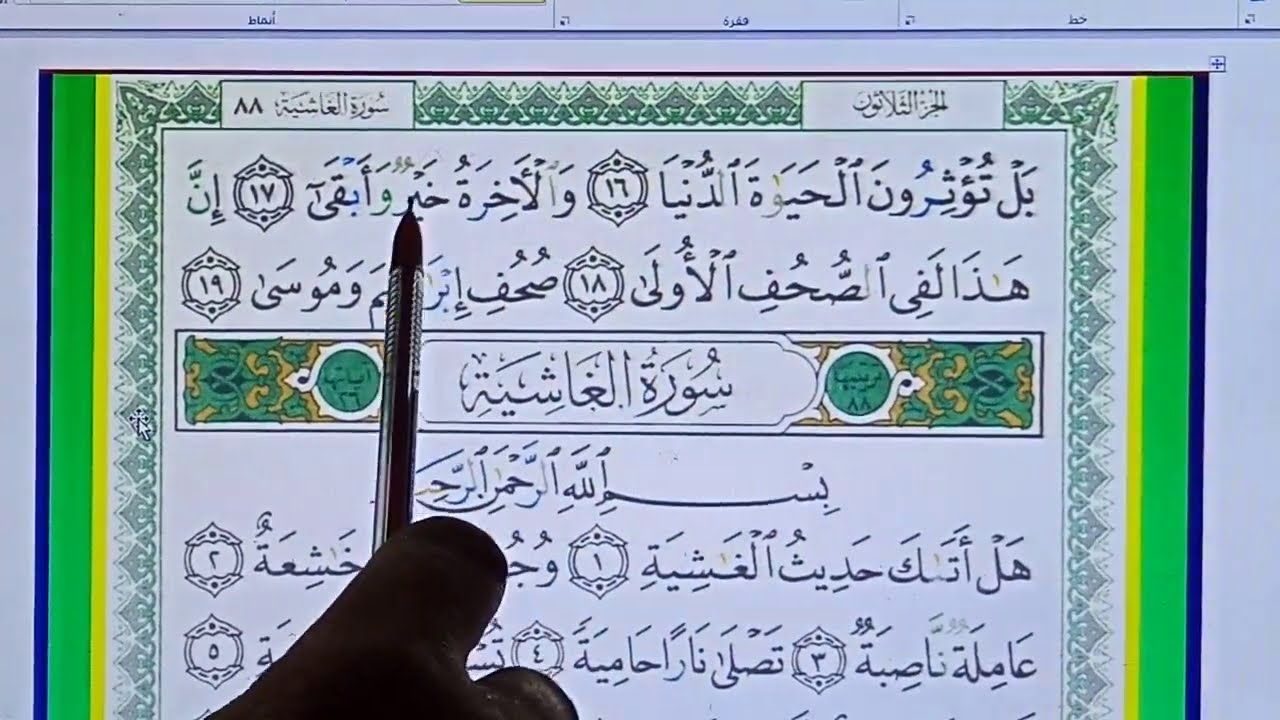 خط
فقرة
أنماط
الجزء الثلاثون
سورة الغاشية ٨٨
بَلْ تُؤْثِرُونَ ٱلْحَيَوٰةَ ٱلدُّنْيَا ١٦ وَٱلْأَخِرَةُ خَيْرٌ وَأَبْقَىٰٓ ١٧ إِنَّ
هَٰذَا لَفِى ٱلصُّحُفِ ٱلْأُولَىٰ ١٨ صُحُفِ وَمُوسَىٰ ١٩
ترتيبها ٨٨
سُورَةُ الْغَاشِيَةِ
آياتها ٢٦
بِسْمِ ٱللَّهِ ٱلرَّحْمَٰنِ
هَلْ أَتَىٰكَ حَدِيثُ ٱلْغَٰشِيَةِ ١ خَٰشِعَةٌ ٢
عَامِلَةٌ نَّاصِبَةٌ ٣ تَصْلَىٰ نَارًا حَامِيَةً ٤ ٥